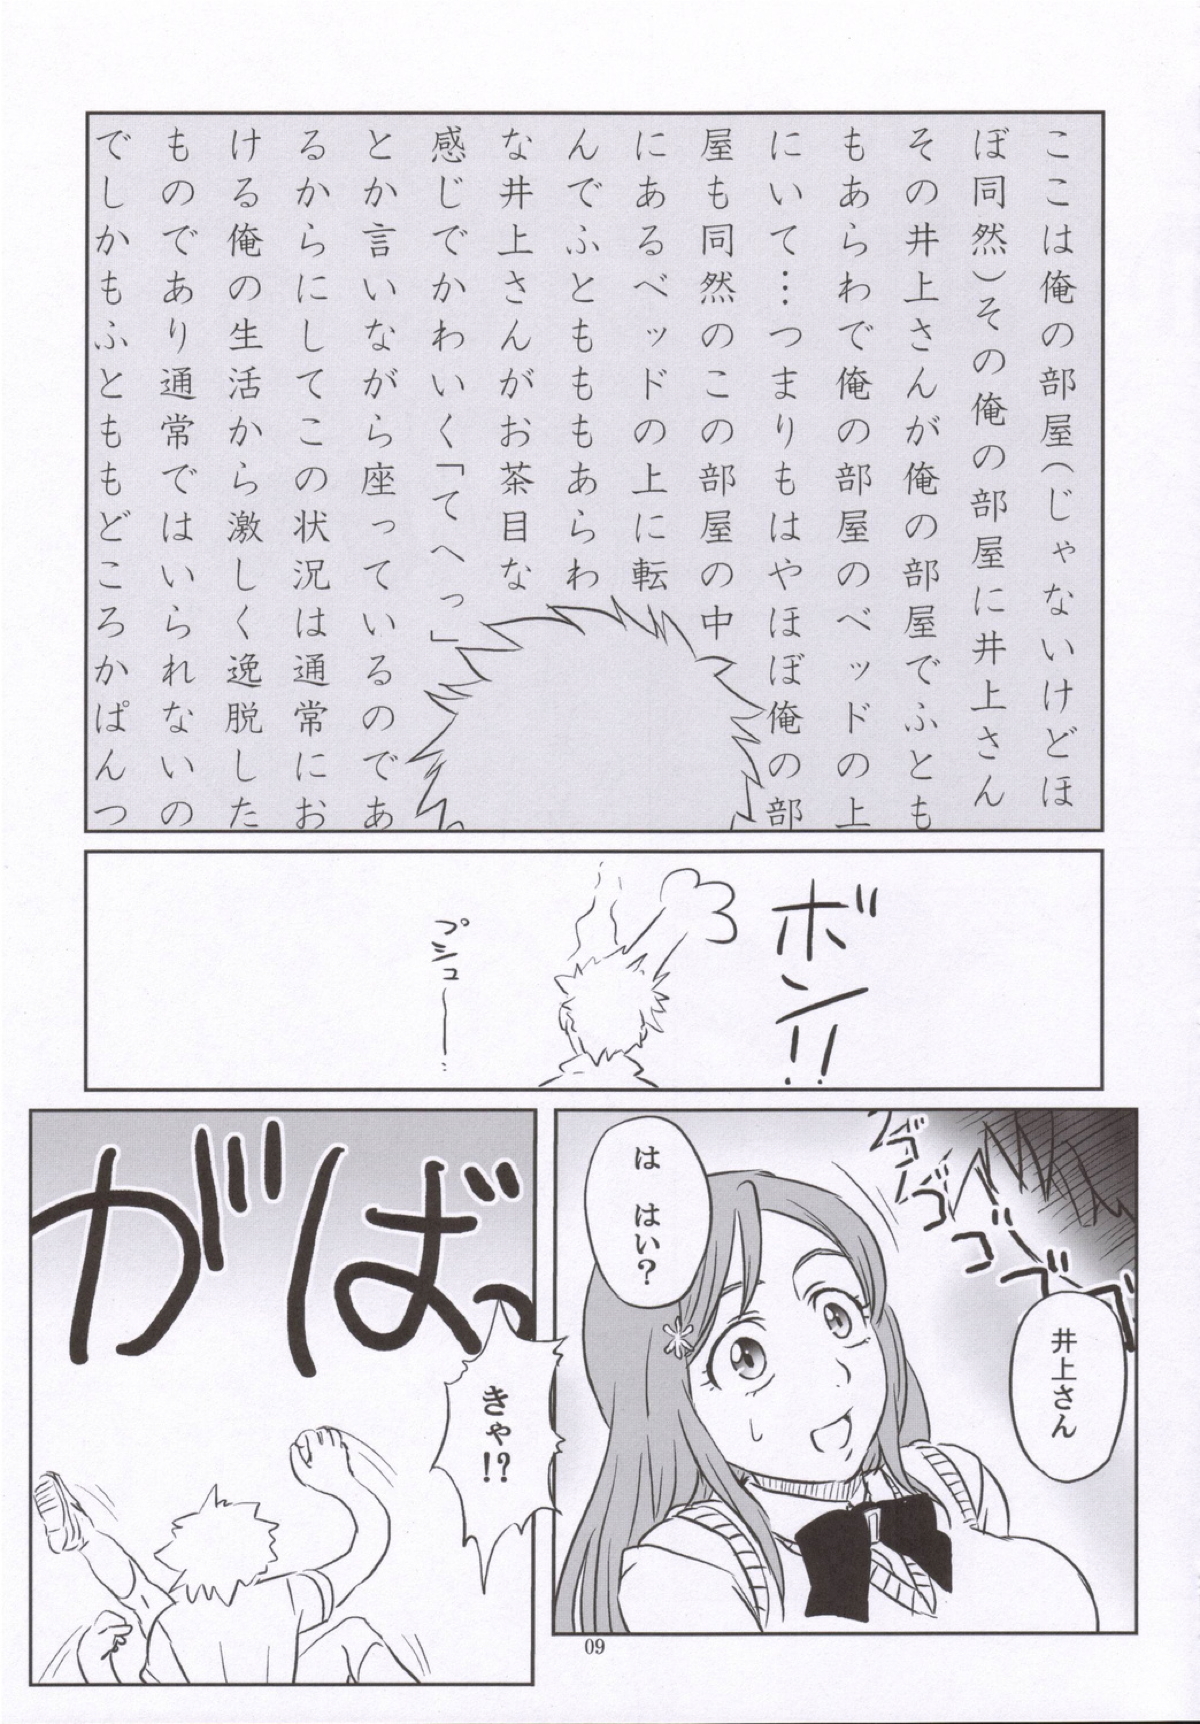 ここは俺の部屋(じゃないけどほ
ぼ同然)その俺の部屋に井上さん
その井上さんが俺の部屋でふとも
もあらわで俺の部屋のベッドの上
にいて…つまりもはやほぼ俺の部
屋も同然のこの部屋の中
にあるベッドの上に転
んでふとももあらわ
な井上さんがお茶目な
感じでかわいく「てへっ」
とか言いながら座っているのであ
るからにしてこの状況は通常にお
ける俺の生活から激しく逸脱した
ものであり通常ではいられないの
でしかもふとももどころかぱんつ
ボン!!
プシュ〜―…
ゴゴゴゴゴ
井上さん
は はい?
がばっ
きゃ!?
09